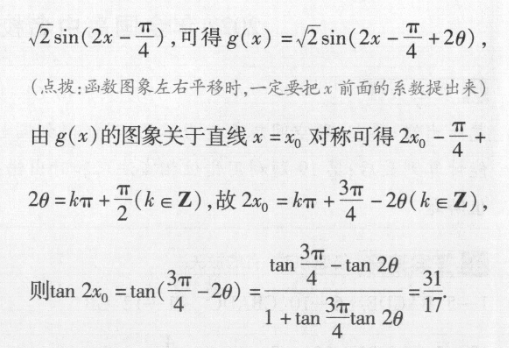 √2 sin(2x − π/4), 可得 g(x) = √2 sin(2x − π/4 + 2θ),
(点拨:函数图象左右平移时,一定要把 x 前面的系数提出来)
由 g(x) 的图象关于直线 x = x₀ 对称可得 2x₀ − π/4 +
2θ = kπ + π/2 (k ∈ Z), 故 2x₀ = kπ + 3π/4 − 2θ(k ∈ Z),
则 tan 2x₀ = tan(3π/4 − 2θ) = (tan 3π/4 − tan 2θ)/(1 + tan 3π/4 tan 2θ) = 31/17.